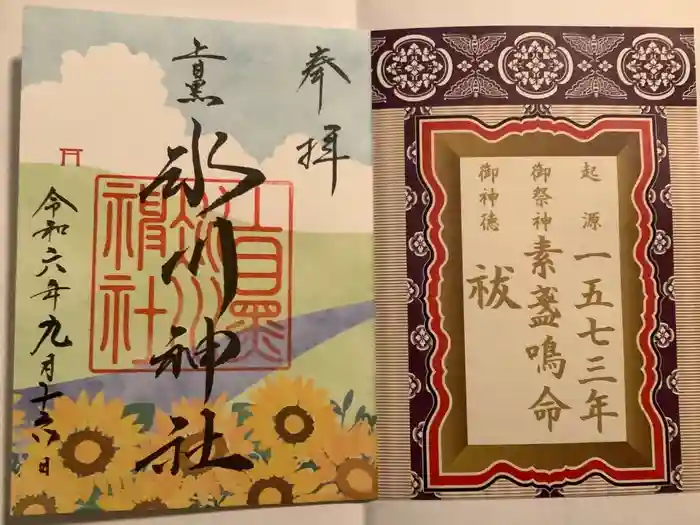 奉拝
上目黒
氷川神社
上目黒
氷川
神社
令和六年九月十六日
起源 一五七三年
御祭神 素盞鳴命
御神徳 祓